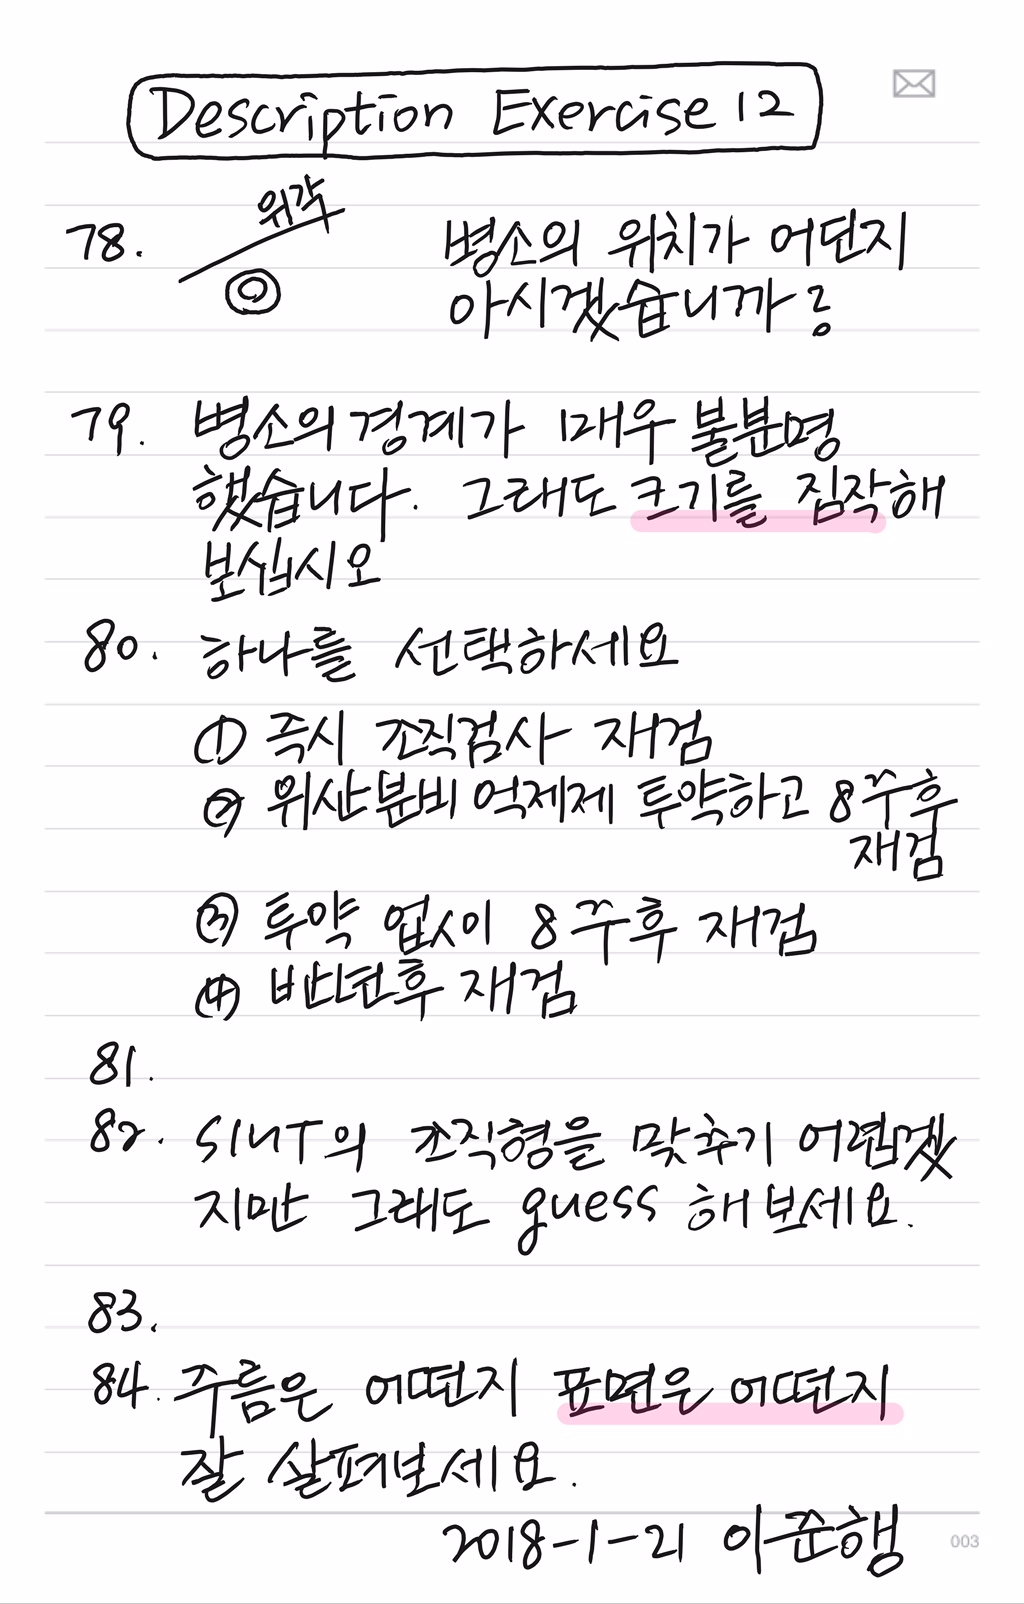 Description Exercise 12
위각
78. 병소의 위치가 어딘지
아시겠습니까?
79. 병소의 경계가 매우 불분명
했습니다. 그래도 크기를 짐작해
보십시오
80. 하나를 선택하세요
① 즉시 조직검사 재검
② 위산분비 억제제 투약하고 8주후
재검
③ 투약 없이 8주후 재검
④ 반년후 재검
81.
82. SMT의 조직형을 맞추기 어렵겠
지만 그래도 guess 해보세요.
83.
84. 주름은 어떤지 표면은 어떤지
잘 살펴보세요.
2018-1-21 이준행
003